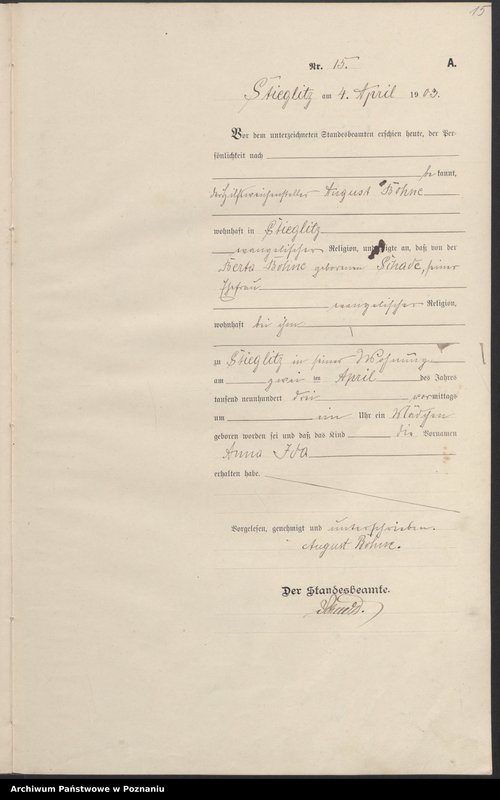 15
Nr. 15. A.
Stieglitz am 4. April 1903.
Vor dem unterzeichneten Standesbeamten erschien heute, der Per-
sönlichkeit nach
be kannt,
der Hilfsweichensteller August Böhne
wohnhaft in Stieglitz
evangelischer Religion, und zeigte an, daß von der
Berta Böhne geborenen Schade, seiner
Ehefrau
evangelischer Religion,
wohnhaft bei ihm
zu Stieglitz in seiner Wohnung
am zwei ten April des Jahres
tausend neunhundert drei vormittags
um ein Uhr ein Mädchen
geboren worden sei und daß das Kind die Vornamen
Anna Ida
erhalten habe.
Vorgelesen, genehmigt und unterschrieben.
August Böhne.
Der Standesbeamte.
Archiwum Państwowe w Poznaniu